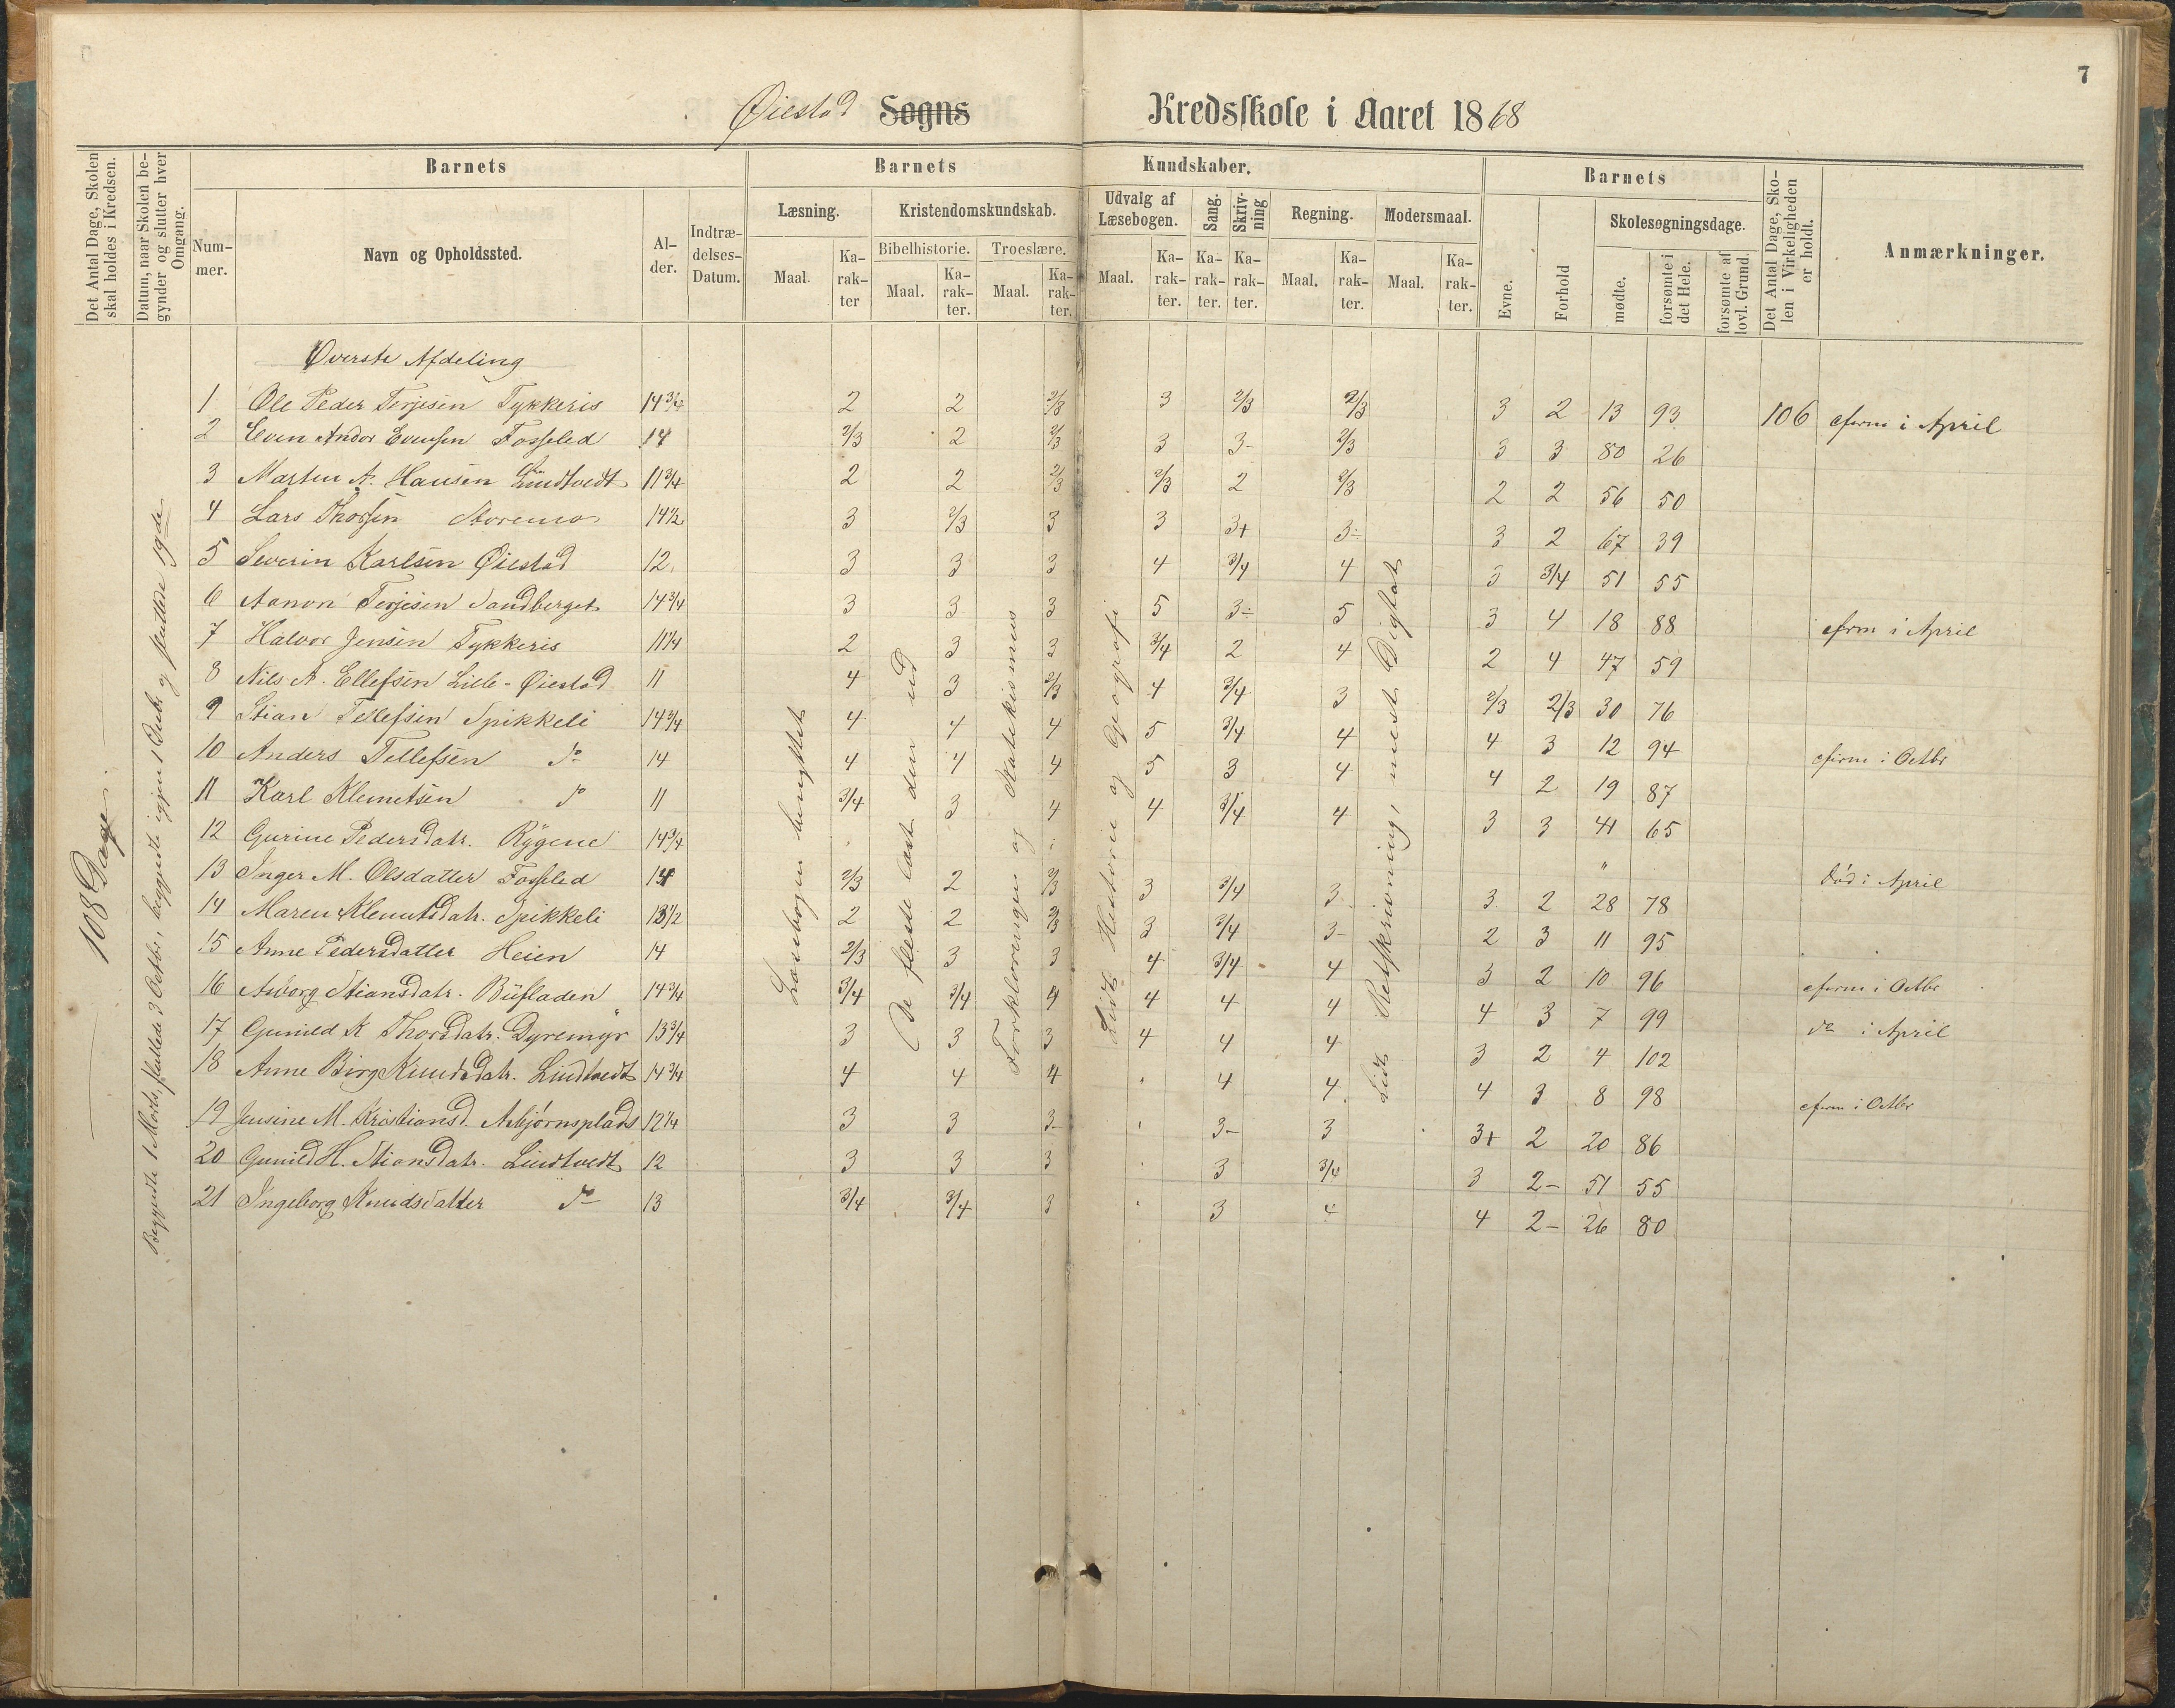 7
Øiestad Sogns Kredsskole i Aaret 1868
Det Antal Dage, Skolen skal holdes i Kredsen.
Datum, naar Skolen begynder og slutter hver Omgang.
Barnets
Nummer.
Navn og Opholdssted.
Alder.
Indtrædelses-Datum.
Barnets Kundskaber.
Læsning.
Maal.
Karakter
Kristendomskundskab.
Bibelhistorie.
Maal.
Karakter.
Troeslære.
Maal.
Karakter.
Udvalg af Læsebogen.
Maal.
Karakter.
Sang.
Karakter.
Skrivning
Karakter.
Regning.
Maal.
Karakter.
Modersmaal.
Maal.
Karakter.
Barnets
Evne.
Forhold
Skolesøgningsdage.
mødte.
forsømte i det Hele.
forsømte af lovl. Grund.
Det Antal Dage, Skolen i Virkeligheden er holdt.
Anmærkninger.
108 Dage
Begyndte 1 Marts, sluttede 3 Octbr, begyndte igjen 1 Decbr og sluttede 19de
Øverste Afdeling
Læsebogen benyttet
De fleste læst den ud
Forklaringen og Katekismus
Lidt Historie og Geografi
Lidt Retskrivning, mest Digtat
1 Ole Peder Terjesen Tykkeris 14 3/4 2 2 2/3 3 2/3 2/3 3 2 13 93 106 cfirm i April
2 Even Andor Evensen Fosseled 14 2/3 2 2/3 3 3- 2/3 3 3 80 26
3 Marten A. Hansen Lindtvedt 11 3/4 2 2 2/3 2/3 2 2/3 2 2 56 50
4 Lars Thorsen Storemo 14 1/2 3 2/3 3 3 3+ 3÷ 3 2 67 39
5 Severin Karlsen Øiestad 12 3 3 3 4 3/4 4 3 3/4 51 55
6 Aanon Terjesen Sandberget 14 3/4 3 3 3 5 3÷ 5 3 4 18 88 cfirm i April
7 Halvor Jensen Tykkeris 11 1/4 2 3 3 3/4 2 4 2 4 47 59
8 Nils A. Ellefsen Lille-Øiestad 11 4 3 2/3 4 3/4 3 2/3 2/3 30 76
9 Stian Tellefsen Spikkeli 14 3/4 4 4 4 5 3/4 4 4 3 12 94 cfirm i Octbr
10 Anders Tellefsen do 14 4 4 4 5 3 4 4 2 19 87
11 Karl Klemetsen do 11 3/4 3 4 4 3/4 4 3 3 41 65
12 Gurine Pedersdatr. Rygene 14 3/4 " Død i April
13 Inger M. Olsdatter Fosseled 14 2/3 2 2/3 3 3/4 3 3 2 28 78
14 Maren Klemetsdatr. Spikkeli 13 1/2 2 2 2/3 3 3/4 3- 2 3 11 95
15 Anne Pedersdatter Heien 14 2/3 3 3 4 3/4 4 3 2 10 96 cfirm i Octbr
16 Asborg Stiansdatr. Büfladen 14 3/4 3/4 3/4 4 4 4 4 4 3 7 99 do i April
17 Gunild K Thorsdatr. Dyremyr 13 3/4 3 3 3 4 4 4 3 2 4 102
18 Anne Birg Knudsdatr. Lindtvedt 14 3/4 4 4 4 " 4 4 4 3 8 98 cfirm i Octbr
19 Jensine M. Kristiansd. Asbjørnsplads 12 1/4 3 3 3- " 3- 3 3+ 2 20 86
20 Gunild H. Stiansdatr. Lindtvedt 12 3 3 3 " 3 3/4 3 2- 51 55
21 Ingeborg Knudsdatter do 13 3/4 3/4 3 " 3 4 4 2- 26 80